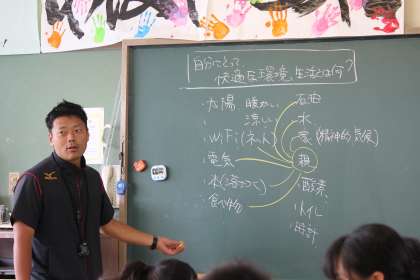 自分にとって
快適な環境、生活とは何?
・太陽 暖かい
涼しい
・WiFi(ネット)
・電気
・水
・食べ物
・石油
・水
・家(精神的
・親
・酸素
・トイレ
・時計